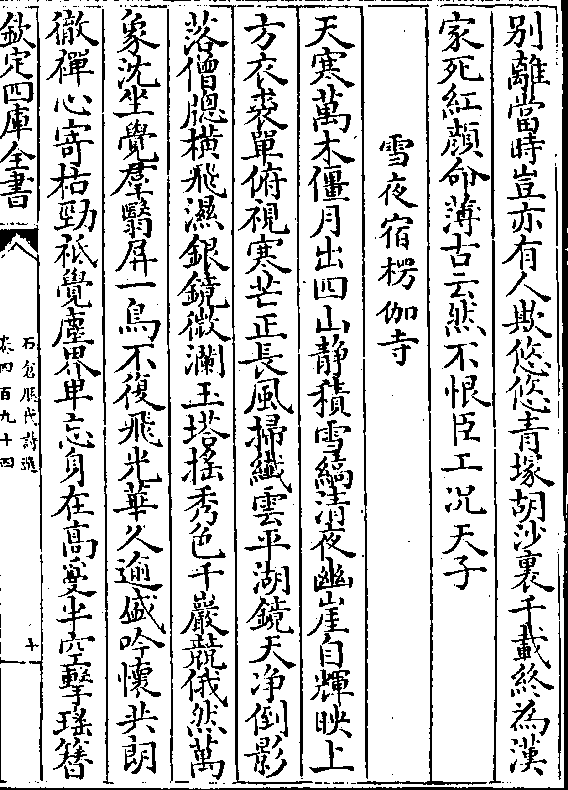 別離當時豈亦有人欺悠悠青塚胡沙裏千載終為漢
家死紅顔命薄古云然不恨臣工况天子
雪夜宿楞伽寺
天寒萬木僵月出四山静積雪縞清夜幽崖自輝映上
方衣裘單俯視寒芒正長風掃纖雲平湖鏡天净倒影
落僧牕横飛濕銀鏡微瀾玉塔摇秀色千巖競俄然萬
象沈坐覺羣翳屏一鳥不復飛光華久逾盛吟懷共朗
徹禪心寄枯勁祗覺塵界卑忘身在高夐半空擊瑶簪
欽定四庫全書
石倉歴代詩選
卷四百九十四
十